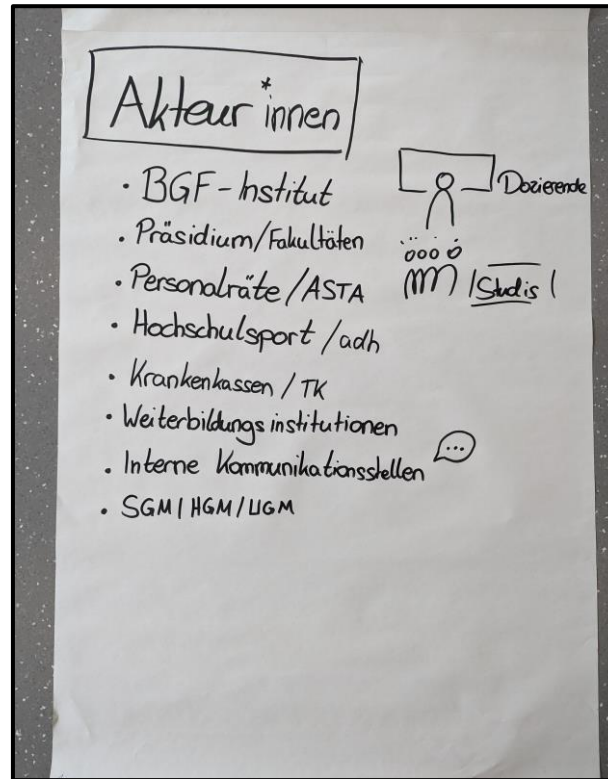 Akteur*innen
• BGF-Institut
• Präsidium/Fakultäten
• Personalräte/ASTA
• Hochschulsport/adh
• Krankenkassen/TK
• Weiterbildungsinstitutionen
• Interne Kommunikationsstellen
• SGM/HGM/UGM
Dozierende
Studis